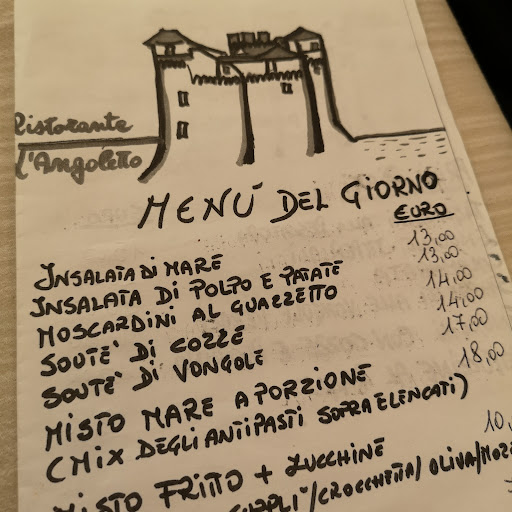 Ristorante
l'Angoletto
MENÚ DEL GIORNO
EURO
INSALATA DI MARE 13,00
INSALATA DI POLPO E PATATE 13,00
MOSCARDINI AL GUAZZETTO 14,00
SOUTE' DI COZZE 14,00
SOUTE' DI VONGOLE 17,00
MISTO MARE A PORZIONE 18,00
(MIX DEGLI ANTIPASTI SOPRA ELENCATI)
MISTO FRITTO + ZUCCHINE 10,
SUPPLI'/CROCCHETTA/OLIVA/MOZZ